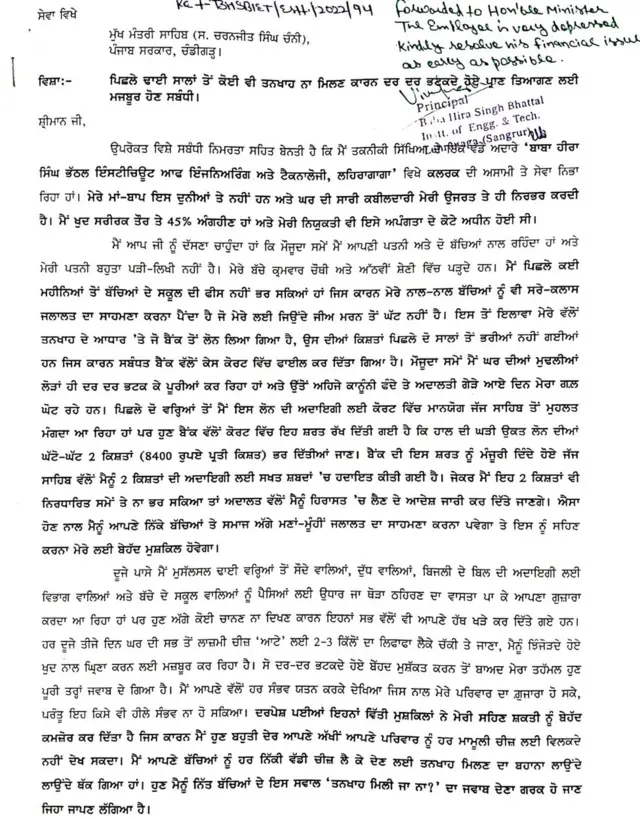 ਸੇਵਾ ਵਿਖੇ
Ref-BHSBIET/Estt/2022/94
ਮੁੱਖ ਮੰਤਰੀ ਸਾਹਿਬ (ਸ. ਚਰਨਜੀਤ ਸਿੰਘ ਚੰਨੀ),
ਪੰਜਾਬ ਸਰਕਾਰ, ਚੰਡੀਗੜ੍ਹ।
Forwarded to Hon'ble Minister
The Employee is very depressed
kindly resolve his financial issue
as early as possible.
Principal
Baba Hira Singh Bhattal
Instt. of Engg. & Tech.
Lehragaga (Sangrur)
ਵਿਸ਼ਾ:- ਪਿਛਲੇ ਢਾਈ ਸਾਲਾਂ ਤੋਂ ਕੋਈ ਵੀ ਤਨਖਾਹ ਨਾ ਮਿਲਣ ਕਾਰਨ ਦਰ ਦਰ ਭਟਕਦੇ ਹੋਏ ਪ੍ਰਾਣ ਤਿਆਗਣ ਲਈ
ਮਜਬੂਰ ਹੋਣ ਸਬੰਧੀ।
ਸ਼੍ਰੀਮਾਨ ਜੀ,
ਉਪਰੋਕਤ ਵਿਸ਼ੇ ਸਬੰਧੀ ਨਿਮਰਤਾ ਸਹਿਤ ਬੇਨਤੀ ਹੈ ਕਿ ਮੈਂ ਤਕਨੀਕੀ ਸਿੱਖਿਆ ਦੇ ਇੱਕ ਵੱਡੇ ਅਦਾਰੇ 'ਬਾਬਾ ਹੀਰਾ
ਸਿੰਘ ਭੱਠਲ ਇੰਸਟੀਚਿਊਟ ਆਫ ਇੰਜਨਿਅਰਿੰਗ ਅਤੇ ਟੈਕਨਾਲੋਜੀ, ਲਹਿਰਾਗਾਗਾ' ਵਿਖੇ ਕਲਰਕ ਦੀ ਅਸਾਮੀ ਤੇ ਸੇਵਾ ਨਿਭਾ
ਰਿਹਾ ਹਾਂ। ਮੇਰੇ ਮਾਂ-ਬਾਪ ਇਸ ਦੁਨੀਆਂ 'ਤੇ ਨਹੀਂ ਹਨ ਅਤੇ ਘਰ ਦੀ ਸਾਰੀ ਕਬੀਲਦਾਰੀ ਮੇਰੀ ਉਜਰਤ ਤੇ ਹੀ ਨਿਰਭਰ ਕਰਦੀ
ਹੈ। ਮੈਂ ਖੁਦ ਸਰੀਰਕ ਤੌਰ ਤੇ 45% ਅੰਗਹੀਣ ਹਾਂ ਅਤੇ ਮੇਰੀ ਨਿਯੁਕਤੀ ਵੀ ਇਸੇ ਅਪੰਗਤਾ ਦੇ ਕੋਟੇ ਅਧੀਨ ਹੋਈ ਸੀ।
ਮੈਂ ਆਪ ਜੀ ਨੂੰ ਦੱਸਣਾ ਚਾਹੁੰਦਾ ਹਾਂ ਕਿ ਮੌਜੂਦਾ ਸਮੇਂ ਮੈਂ ਆਪਣੀ ਪਤਨੀ ਅਤੇ ਦੋ ਬੱਚਿਆਂ ਨਾਲ ਰਹਿੰਦਾ ਹਾਂ ਅਤੇ
ਮੇਰੀ ਪਤਨੀ ਬਹੁਤਾ ਪੜੀ-ਲਿਖੀ ਨਹੀਂ ਹੈ। ਮੇਰੇ ਬੱਚੇ ਕ੍ਰਮਵਾਰ ਚੌਥੀ ਅਤੇ ਅੱਠਵੀਂ ਸ਼੍ਰੇਣੀ ਵਿੱਚ ਪੜ੍ਹਦੇ ਹਨ। ਮੈਂ ਪਿਛਲੇ ਕਈ
ਮਹੀਨਿਆਂ ਤੋਂ ਬੱਚਿਆਂ ਦੇ ਸਕੂਲ ਦੀ ਫੀਸ ਨਹੀਂ ਭਰ ਸਕਿਆ ਹਾਂ ਜਿਸ ਕਾਰਨ ਮੇਰੇ ਨਾਲ-ਨਾਲ ਬੱਚਿਆਂ ਨੂੰ ਵੀ ਸਰੇ-ਕਲਾਸ
ਜਲਾਲਤ ਦਾ ਸਾਹਮਣਾ ਕਰਨਾ ਪੈਂਦਾ ਹੈ ਜੋ ਮੇਰੇ ਲਈ ਜਿਉਂਦੇ ਜੀਅ ਮਰਨ ਤੋਂ ਘੱਟ ਨਹੀਂ ਹੈ। ਇਸ ਤੋਂ ਇਲਾਵਾ ਮੇਰੇ ਵੱਲੋਂ
ਤਨਖਾਹ ਦੇ ਆਧਾਰ 'ਤੇ ਜੋ ਬੈਂਕ ਤੋਂ ਲੋਨ ਲਿਆ ਗਿਆ ਹੈ, ਉਸ ਦੀਆਂ ਕਿਸ਼ਤਾਂ ਪਿਛਲੇ ਦੋ ਸਾਲਾਂ ਤੋਂ ਭਰੀਆਂ ਨਹੀਂ ਗਈਆਂ
ਹਨ ਜਿਸ ਕਾਰਨ ਸਬੰਧਤ ਬੈਂਕ ਵੱਲੋਂ ਕੇਸ ਕੋਰਟ ਵਿੱਚ ਫਾਈਲ ਕਰ ਦਿੱਤਾ ਗਿਆ ਹੈ। ਮੌਜੂਦਾ ਸਮੇਂ ਮੈਂ ਘਰ ਦੀਆਂ ਮੁਢਲੀਆਂ
ਲੋੜਾਂ ਹੀ ਦਰ ਦਰ ਭਟਕ ਕੇ ਪੂਰੀਆਂ ਕਰ ਰਿਹਾ ਹਾਂ ਅਤੇ ਉੱਤੋਂ ਅਹਿਜੇ ਕਾਨੂੰਨੀ ਫੰਦੇ ਤੇ ਅਦਾਲਤੀ ਗੇੜੇ ਆਏ ਦਿਨ ਮੇਰਾ ਗਲ
ਘੋਟ ਰਹੇ ਹਨ। ਪਿਛਲੇ ਦੋ ਵਰ੍ਹਿਆਂ ਤੋਂ ਮੈਂ ਇਸ ਲੋਨ ਦੀ ਅਦਾਇਗੀ ਲਈ ਕੋਰਟ ਵਿੱਚ ਮਾਨਯੋਗ ਜੱਜ ਸਾਹਿਬ ਤੋਂ ਮੁਹਲਤ
ਮੰਗਦਾ ਆ ਰਿਹਾ ਹਾਂ ਪਰ ਹੁਣ ਬੈਂਕ ਵੱਲੋਂ ਕੋਰਟ ਵਿੱਚ ਇਹ ਸ਼ਰਤ ਰੱਖ ਦਿੱਤੀ ਗਈ ਹੈ ਕਿ ਹਾਲ ਦੀ ਘੜੀ ਉਕਤ ਲੋਨ ਦੀਆਂ
ਘੱਟੋ-ਘੱਟ 2 ਕਿਸ਼ਤਾਂ (8400 ਰੁਪਏ ਪ੍ਰਤੀ ਕਿਸ਼ਤ) ਭਰ ਦਿੱਤੀਆਂ ਜਾਣ। ਬੈਂਕ ਦੀ ਇਸ ਸ਼ਰਤ ਨੂੰ ਮਨਜ਼ੂਰੀ ਦਿੰਦੇ ਹੋਏ ਜੱਜ
ਸਾਹਿਬ ਵੱਲੋਂ ਮੈਨੂੰ 2 ਕਿਸ਼ਤਾਂ ਦੀ ਅਦਾਇਗੀ ਲਈ ਸਖਤ ਸ਼ਬਦਾਂ 'ਚ ਹਦਾਇਤ ਕੀਤੀ ਗਈ ਹੈ। ਜੇਕਰ ਮੈਂ ਇਹ 2 ਕਿਸ਼ਤਾਂ ਵੀ
ਨਿਰਧਾਰਿਤ ਸਮੇਂ ਤੇ ਨਾ ਭਰ ਸਕਿਆ ਤਾਂ ਅਦਾਲਤ ਵੱਲੋਂ ਮੈਨੂੰ ਹਿਰਾਸਤ 'ਚ ਲੈਣ ਦੇ ਆਦੇਸ਼ ਜਾਰੀ ਕਰ ਦਿੱਤੇ ਜਾਣਗੇ। ਐਸਾ
ਹੋਣ ਨਾਲ ਮੈਨੂੰ ਆਪਣੇ ਨਿੱਕੇ ਬੱਚਿਆਂ ਤੇ ਸਮਾਜ ਅੱਗੇ ਮਣਾਂ-ਮੂੰਹੀਂ ਜਲਾਲਤ ਦਾ ਸਾਹਮਣਾ ਕਰਨਾ ਪਵੇਗਾ ਤੇ ਇਸ ਨੂੰ ਸਹਿਣ
ਕਰਨਾ ਮੇਰੇ ਲਈ ਬੇਹੱਦ ਮੁਸ਼ਕਿਲ ਹੋਵੇਗਾ।
ਦੂਜੇ ਪਾਸੇ ਮੈਂ ਮੁਸੱਲਸਲ ਢਾਈ ਵਰ੍ਹਿਆਂ ਤੋਂ ਸੌਦੇ ਵਾਲਿਆਂ, ਦੁੱਧ ਵਾਲਿਆਂ, ਬਿਜਲੀ ਦੇ ਬਿਲ ਦੀ ਅਦਾਇਗੀ ਲਈ
ਵਿਭਾਗ ਵਾਲਿਆਂ ਅਤੇ ਬੱਚੇ ਦੇ ਸਕੂਲ ਵਾਲਿਆਂ ਨੂੰ ਪੈਸਿਆਂ ਲਈ ਉਧਾਰ ਜਾ ਥੋੜਾ ਠਹਿਰਣ ਦਾ ਵਾਸਤਾ ਪਾ ਕੇ ਆਪਣਾ ਗੁਜ਼ਾਰਾ
ਕਰਦਾ ਆ ਰਿਹਾ ਹਾਂ ਪਰ ਹੁਣ ਅੱਗੇ ਕੋਈ ਚਾਨਣ ਨਾ ਦਿਖਣ ਕਾਰਨ ਇਹਨਾਂ ਸਭ ਵੱਲੋਂ ਵੀ ਆਪਣੇ ਹੱਥ ਖੜੇ ਕਰ ਦਿੱਤੇ ਗਏ ਹਨ।
ਹਰ ਦੂਜੇ ਤੀਜੇ ਦਿਨ ਘਰ ਦੀ ਸਭ ਤੋਂ ਲਾਜ਼ਮੀ ਚੀਜ਼ 'ਆਟੇ' ਲਈ 2-3 ਕਿੱਲੋਂ ਦਾ ਲਿਫਾਫਾ ਲੈਕੇ ਚੱਕੀ ਤੇ ਜਾਣਾ, ਮੈਨੂੰ ਝਿੰਜੋੜਦੇ ਹੋਏ
ਖੁਦ ਨਾਲ ਘ੍ਰਿਣਾ ਕਰਨ ਲਈ ਮਜਬੂਰ ਕਰ ਰਿਹਾ ਹੈ। ਸੋ ਦਰ-ਦਰ ਭਟਕਦੇ ਹੋਏ ਬੇਂਹਦ ਮੁਸ਼ੱਕਤ ਕਰਨ ਤੋਂ ਬਾਅਦ ਮੇਰਾ ਤਹੱਮਲ ਹੁਣ
ਪੂਰੀ ਤਰ੍ਹਾਂ ਜਵਾਬ ਦੇ ਗਿਆ ਹੈ। ਮੈਂ ਆਪਣੇ ਵੱਲੋਂ ਹਰ ਸੰਭਵ ਯਤਨ ਕਰਕੇ ਦੇਖਿਆ ਜਿਸ ਨਾਲ ਮੇਰੇ ਪਰਿਵਾਰ ਦਾ ਗੁਜਾਰਾ ਹੋ ਸਕੇ,
ਪਰੰਤੂ ਇਹ ਕਿਸੇ ਵੀ ਹੀਲੇ ਸੰਭਵ ਨਾ ਹੋ ਸਕਿਆ। ਦਰਪੇਸ਼ ਪਈਆਂ ਇਹਨਾਂ ਵਿੱਤੀ ਮੁਸ਼ਕਿਲਾਂ ਨੇ ਮੇਰੀ ਸਹਿਣ ਸ਼ਕਤੀ ਨੂੰ ਬੇਹੱਦ
ਕਮਜ਼ੋਰ ਕਰ ਦਿੱਤਾ ਹੈ ਜਿਸ ਕਾਰਨ ਮੈਂ ਹੁਣ ਬਹੁਤੀ ਦੇਰ ਆਪਣੇ ਅੱਖੀਂ ਆਪਣੇ ਪਰਿਵਾਰ ਨੂੰ ਹਰ ਮਾਮੂਲੀ ਚੀਜ਼ ਲਈ ਵਿਲਕਦੇ
ਨਹੀਂ ਦੇਖ ਸਕਦਾ। ਮੈਂ ਆਪਣੇ ਬੱਚਿਆਂ ਨੂੰ ਹਰ ਨਿੱਕੀ ਵੱਡੀ ਚੀਜ਼ ਲੈ ਕੇ ਦੇਣ ਲਈ ਤਨਖਾਹ ਮਿਲਣ ਦਾ ਬਹਾਨਾ ਲਾਉਂਦੇ
ਲਾਉਂਦੇ ਥੱਕ ਗਿਆ ਹਾਂ। ਹੁਣ ਮੈਨੂੰ ਨਿੱਤ ਬੱਚਿਆਂ ਦੇ ਇਸ ਸਵਾਲ 'ਤਨਖਾਹ ਮਿਲੀ ਜਾ ਨਾ?' ਦਾ ਜਵਾਬ ਦੇਣਾ ਗਰਕ ਹੋ ਜਾਣ
ਜਿਹਾ ਜਾਪਣ ਲੱਗਿਆ ਹੈ।